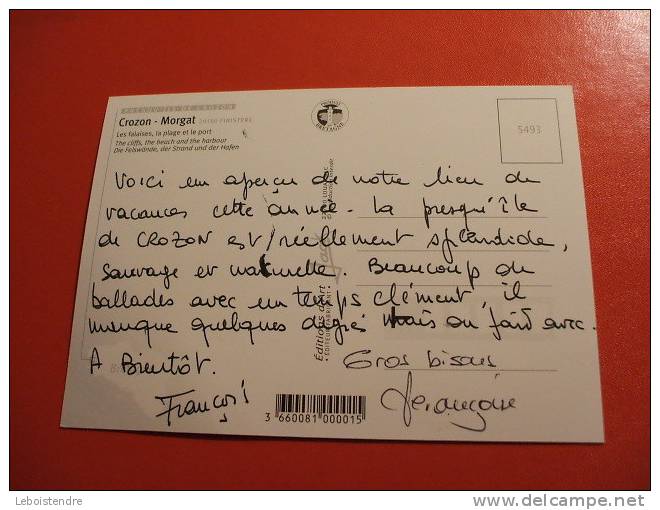 PRESQU'ILE DE CROZON
Crozon - Morgat 29160 FINISTERE
Les falaises, la plage et le port
The cliffs, the beach and the harbour
Die Felswände, der Strand und der Hafen
PRODUIT
BRETAGNE
5493
Voici un aperçu de notre lieu de
vacances cette année. La presqu'île
de CROZON est réellement splendide,
sauvage et naturelle. Beaucoup de
ballades avec un temps clément, il
manque quelques degrés mais on fait avec.
A Bientôt.
Gros bisous
François
Editions d'art
EDITEUR FABRICANT
Jack
3 660081 000015
Leboistendre
www.delcampe.net